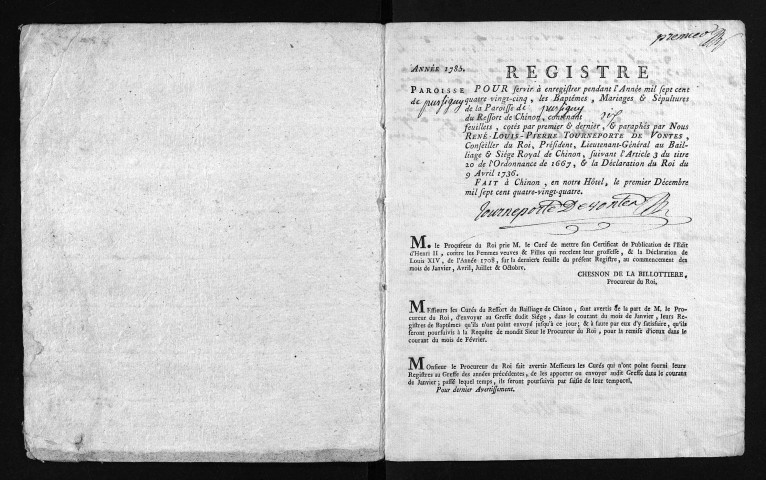 premier
ANNÉE 1785.
REGISTRE
PAROISSE
de pussigny
POUR servir à enregistrer pendant l'Année mil sept cent
quatre vingt-cinq, les Baptêmes, Mariages & Sépultures
de la Paroisse de pussigny
du Ressort de Chinon, contenant
feuillets, cotés par premier & dernier, & paraphés par Nous
RENÉ-LOUIS-PIERRE TOURNEPORTE DE VONTES,
Conseiller du Roi, Président, Lieutenant-Général au Bail-
liage & Siége Royal de Chinon, suivant l'Article 3 du titre
20 de l'Ordonnance de 1667, & la Déclaration du Roi du
9 Avril 1736.
FAIT à Chinon, en notre Hôtel, le premier Décembre
mil sept cent quatre-vingt-quatre.
Tourneporte De vontes
M. le Procureur du Roi prie M. le Curé de mettre son Certificat de Publication de l'Edit
d'Henri II, contre les Femmes veuves & Filles qui recelent leur grossesse, & la Déclaration de
Louis XIV, de l'Année 1708, sur la derniere feuille du présent Registre, au commencement des
mois de Janvier, Avril, Juillet & Octobre.
CHESNON DE LA BILLOTTIERE,
Procureur du Roi,
MEssieurs les Curés du Ressort du Bailliage de Chinon, sont avertis de la part de M. le Pro-
cureur du Roi, d'envoyer au Greffe dudit Siége, dans le courant du mois de Janvier, leurs Re-
gistres de Baptêmes qu'ils n'ont point envoyé jusqu'à ce jour; & à faute par eux d'y satisfaire, qu'ils
seront poursuivis à la Requête de mondit Sieur le Procureur du Roi, pour la remise d'iceux dans le
courant du mois de Février.
MOnsieur le Procureur du Roi fait avertir Messieurs les Curés qui n'ont point fourni leurs
Registres au Greffe des années précédentes, de les apporter ou envoyer audit Greffe dans le courant
de Janvier; passé lequel temps, ils seront poursuivis par saisie de leur temporel.
Pour dernier Avertissement.